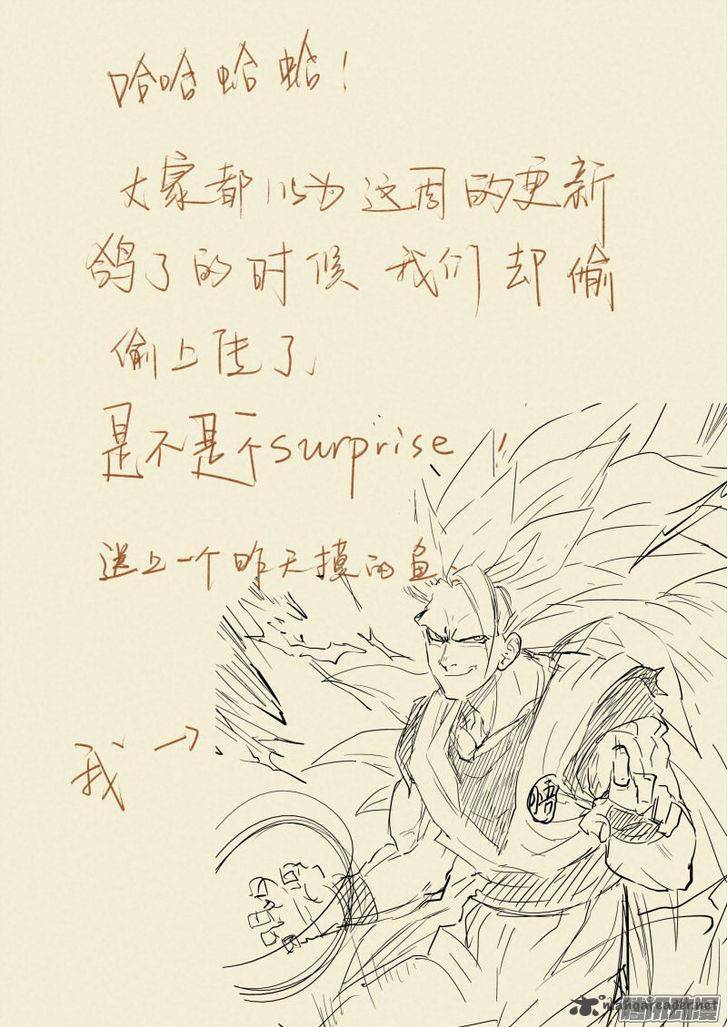 哈哈蛤蛤！
大家都以为这周的更新
鸽了的时候 我们却偷
偷上传了
是不是个surprise!!
送上一个昨天摸的鱼.
我→
悟
mangareader.net
腾讯动漫